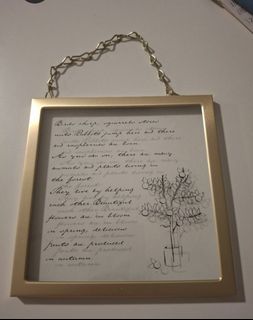 Birds chirp, squirrels store
nuts. Rabbits jump here and there
and raspberries are born
As you do on, there are many
animals and plants living in
the forest.
They live by helping
each other Beautiful
flowers are in bloom
in spring, delicious
fruits are produced
in autumn.